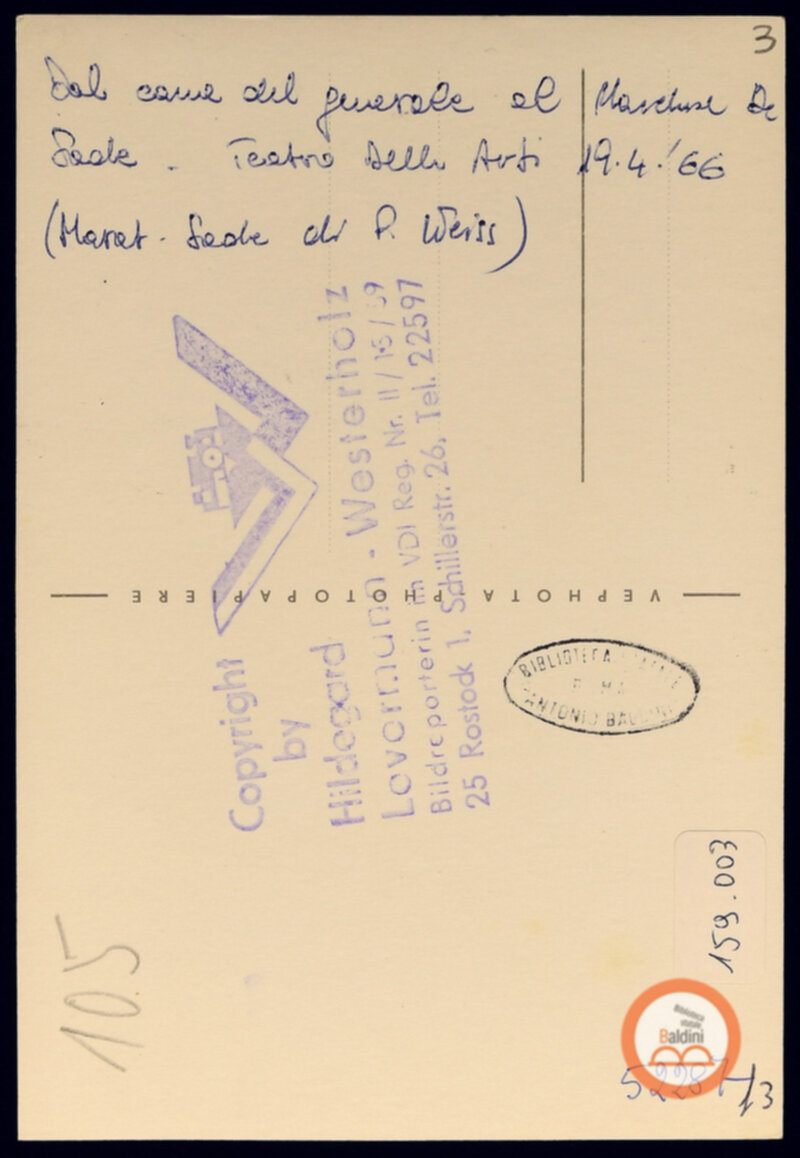 3
Dal cane del generale al Marchese De
Sade - Teatro delle Arti 19.4.'66
(Marat - Sade di P. Weiss)
Copyright
by
Hildegard
Lovormann - Westerholz
Bildreporterin im VDJ Reg. Nr. II/15/59
25 Rostock 1, Schillerstr. 26, Tel. 22597
VEPHOTA PHOTOPAPIERE
BIBLIOTECA
ANTONIO BALDINI
159.003
105
Biblioteca
statale
Baldini
52287/13